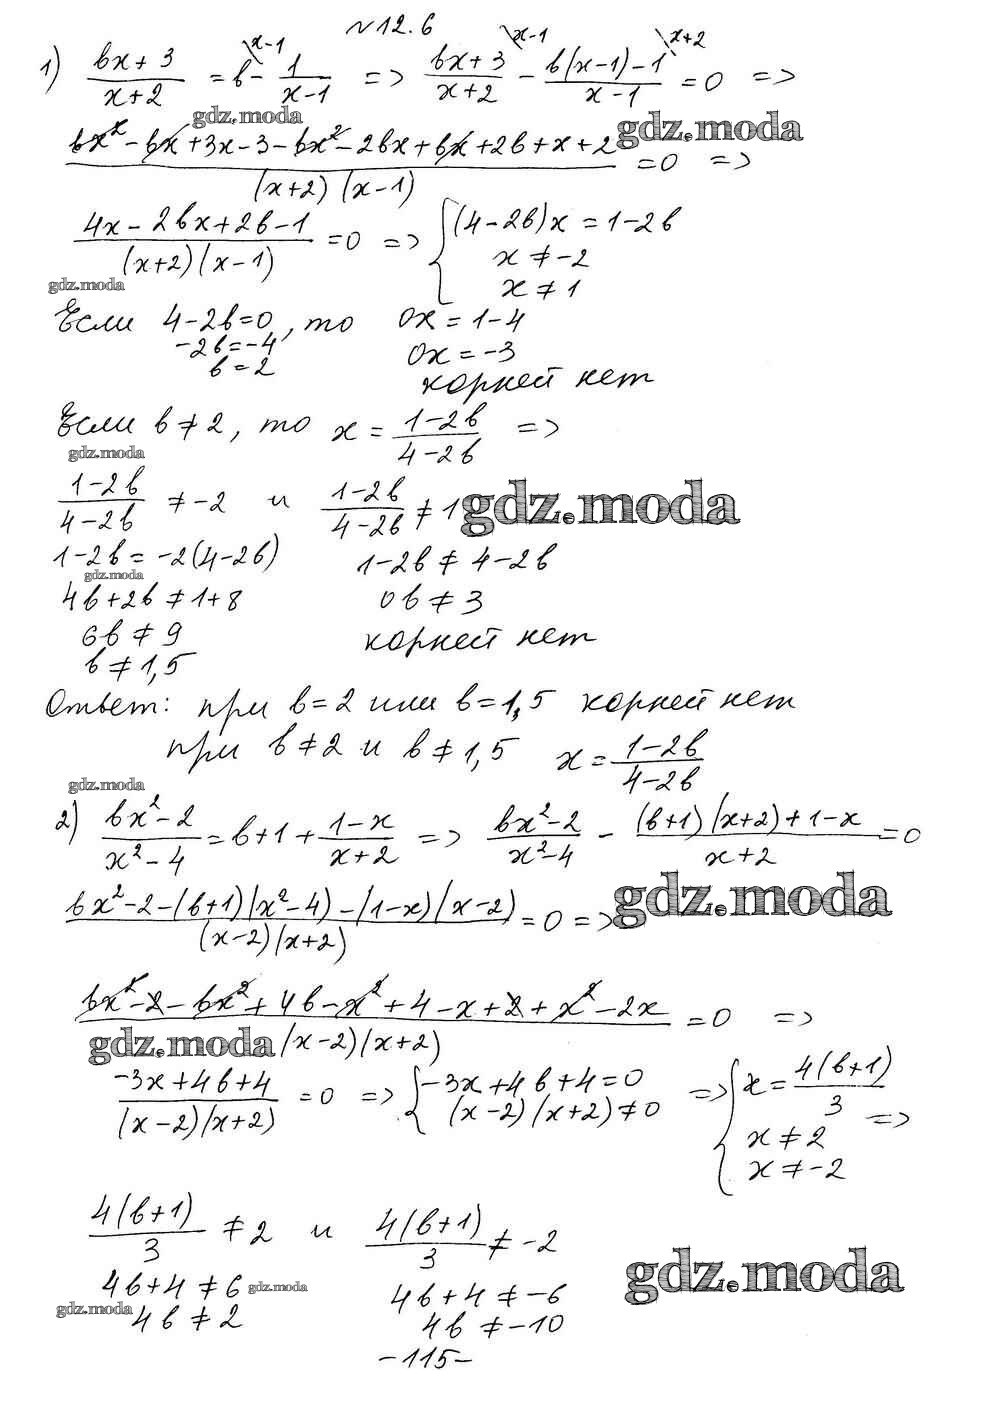 №12.6
1) (bx+3)/(x+2) = b - 1/(x-1) \x-1 => (bx+3)/(x+2) \x-1 - (b(x-1)-1)/(x-1) \x+2 = 0 =>
gdz.moda
gdz.moda
(bx² - bx + 3x - 3 - bx² - 2bx + bx + 2b + x + 2)/((x+2)(x-1)) = 0 =>
(4x - 2bx + 2b - 1)/((x+2)(x-1)) = 0 => { (4-2b)x = 1-2b
x ≠ -2
x ≠ 1
gdz.moda
Если 4-2b=0, то 0x = 1-4
-2b = -4 0x = -3
b = 2 корней нет
Если b ≠ 2, то x = (1-2b)/(4-2b) =>
gdz.moda
(1-2b)/(4-2b) ≠ -2 и (1-2b)/(4-2b) ≠ 1
gdz.moda
1-2b = -2(4-2b) 1-2b ≠ 4-2b
gdz.moda
4b+2b ≠ 1+8 0b ≠ 3
6b ≠ 9 корней нет
b ≠ 1,5
Ответ: при b=2 или b=1,5 корней нет
при b≠2 и b≠1,5 x = (1-2b)/(4-2b)
gdz.moda
2) (bx²-2)/(x²-4) = b+1 + (1-x)/(x+2) => (bx²-2)/(x²-4) - ((b+1)(x+2)+1-x)/(x+2) = 0
gdz.moda
(bx²-2-(b+1)(x²-4)-(1-x)(x-2))/((x-2)(x+2)) = 0 =>
(bx²-2-bx²+4b-x²+4-x+2+x²-2x)/((x-2)(x+2)) = 0 =>
gdz.moda
(-3x+4b+4)/((x-2)(x+2)) = 0 => { -3x+4b+4=0 => { x = 4(b+1)/3 =>
(x-2)(x+2)≠0 x ≠ 2
x ≠ -2
4(b+1)/3 ≠ 2 и 4(b+1)/3 ≠ -2
gdz.moda
4b+4 ≠ 6 4b+4 ≠ -6
gdz.moda
gdz.moda
4b ≠ 2 4b ≠ -10
-115-